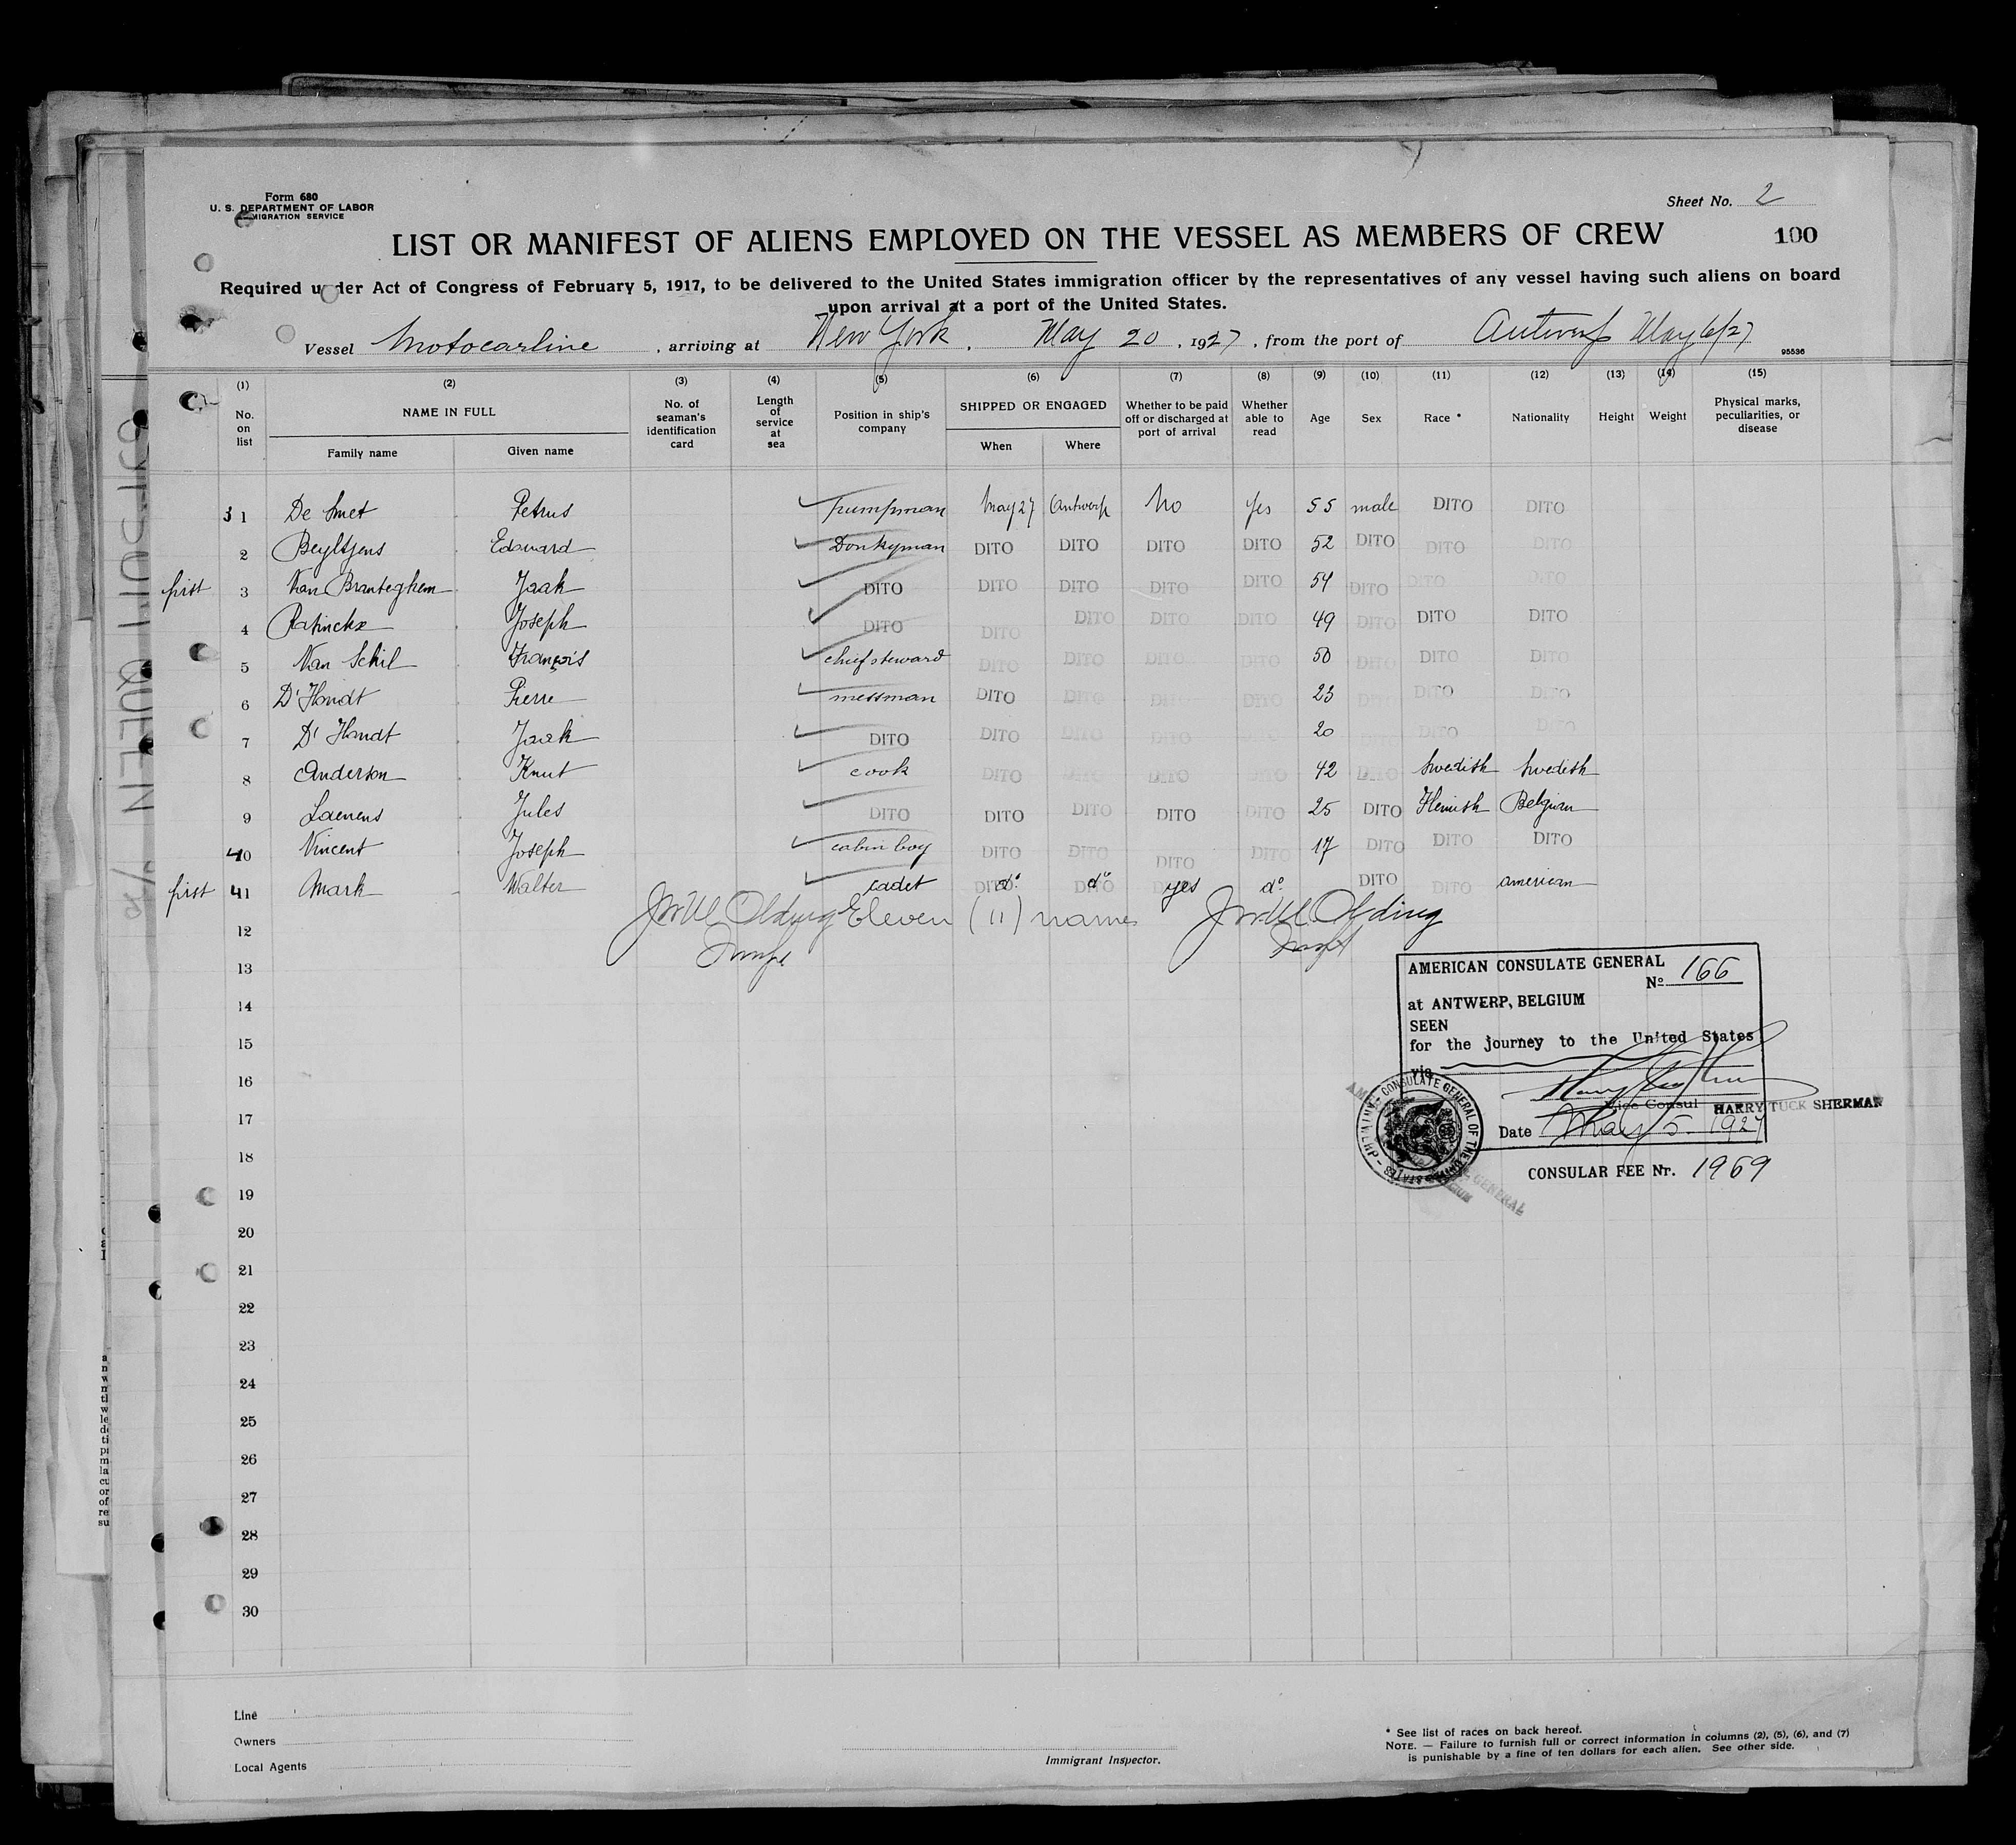 Form 680
U. S. DEPARTMENT OF LABOR
IMMIGRATION SERVICE
Sheet No. 2
LIST OR MANIFEST OF ALIENS EMPLOYED ON THE VESSEL AS MEMBERS OF CREW
100
Required under Act of Congress of February 5, 1917, to be delivered to the United States immigration officer by the representatives of any vessel having such aliens on board
upon arrival at a port of the United States.
Vessel Motocarline, arriving at New York, May 20, 1927, from the port of Antwerp May 6/27
95536
(1) (2) (3) (4) (5) (6) (7) (8) (9) (10) (11) (12) (13) (14) (15)
No. on list NAME IN FULL No. of seaman's identification card Length of service at sea Position in ship's company SHIPPED OR ENGAGED Whether to be paid off or discharged at port of arrival Whether able to read Age Sex Race * Nationality Height Weight Physical marks, peculiarities, or disease
Family name Given name When Where
31 De Smet Petrus Pumpman May 27 Antwerp No Yes 55 male DITO DITO
2 Beyltjens Edouard Donkyman DITO DITO DITO DITO 52 DITO DITO DITO
first 3 Van Branteghem Jaak DITO DITO DITO DITO DITO 54 DITO DITO DITO
4 Ratinckx Joseph DITO DITO DITO DITO DITO 49 DITO DITO DITO
5 Van Schil François chief steward DITO DITO DITO DITO 50 DITO DITO DITO
6 D'Hondt Pierre messman DITO DITO DITO DITO 23 DITO DITO DITO
7 D'Hondt Jaak DITO DITO DITO DITO 20 DITO DITO
8 Anderson Knut cook DITO DITO DITO DITO 42 DITO Swedish Swedish
9 Laenens Jules DITO DITO DITO DITO DITO 25 DITO Flemish Belgium
40 Vincent Joseph cabin boy DITO DITO DITO DITO 17 DITO DITO DITO
first 41 Mark Walter cadet do do yes do DITO DITO american
Olding Eleven (11) names Olding
12
13
14
15
16
17
18
19
20
21
22
23
24
25
26
27
28
29
30
AMERICAN CONSULATE GENERAL
No 166
at ANTWERP, BELGIUM
SEEN
for the journey to the United States
via
Vice Consul HARRY TUCK SHERMAN
Date May 5. 1927
CONSULAR FEE Nr. 1969
Line
Owners
Local Agents
Immigrant Inspector.
* See list of races on back hereof.
NOTE. — Failure to furnish full or correct information in columns (2), (5), (6), and (7)
is punishable by a fine of ten dollars for each alien. See other side.